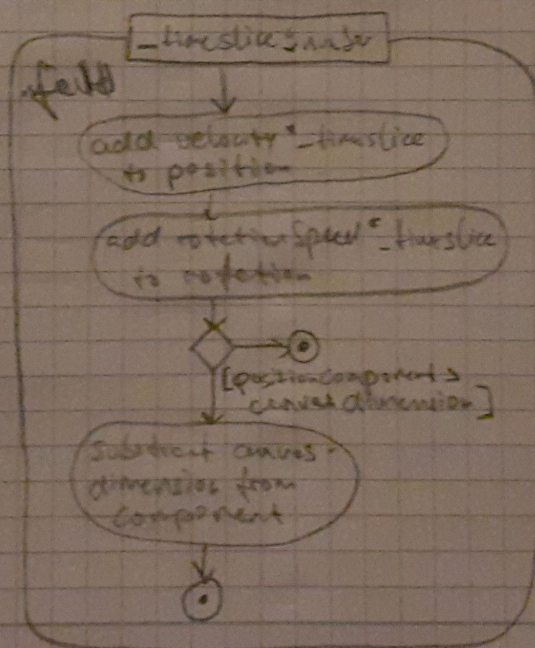 _timeslice: number
add velocity*_timeslice
to position
add rotationSpeed*_timeslice
to rotation
[position component >
canvas dimension]
substract canvas-
dimension from
component